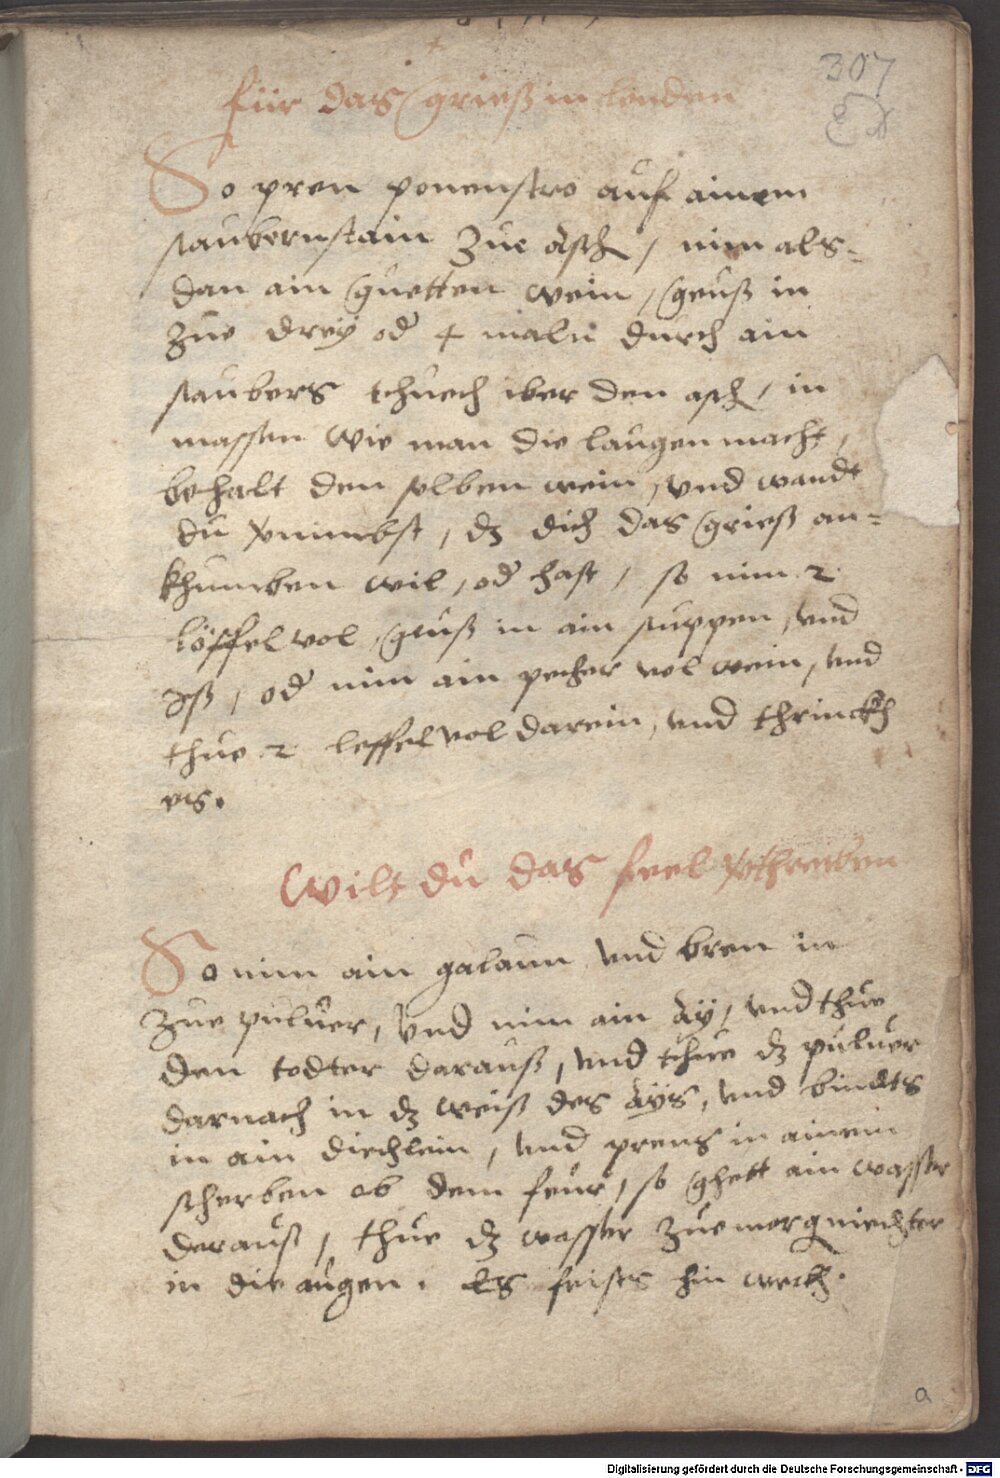 307
für das grieß in lenden
So pren ponenstro auf ainem
saubern stain zue äsch / nim als-
dan ain guetten wein, geuß in
zue drey od 4 maln durch ain
saubers thuech iber den asch, in
massen wie man die laugen macht,
behalt den selben wein, vnd wandt
du vernimbst, dz dich das grieß an-
khumben wil, od hast, so nim 2
löffel vol, geuß in ain suppen, vnd
Iß, od nim ain pecher vol wein, vnd
thue 2 leffel vol darein, vnd thrinckh
es.
Wilt du das feel verthreiben
So nim ain galaun vnd bren in
zue puluer, Vnd nim ain äy, vnd thue
den todter darauß, vnd thue dz puluer
darnach in dz weiß des äys, vnd bindts
in ain diechlein, vnd prens in ainem
scherben ob dem feur, so ghett ain wasser
darauß, thue dz wasser zue morg
in die augen. Es hin weckh.
a
Digitalisierung gefördert durch die Deutsche Forschungsgemeinschaft - DFG